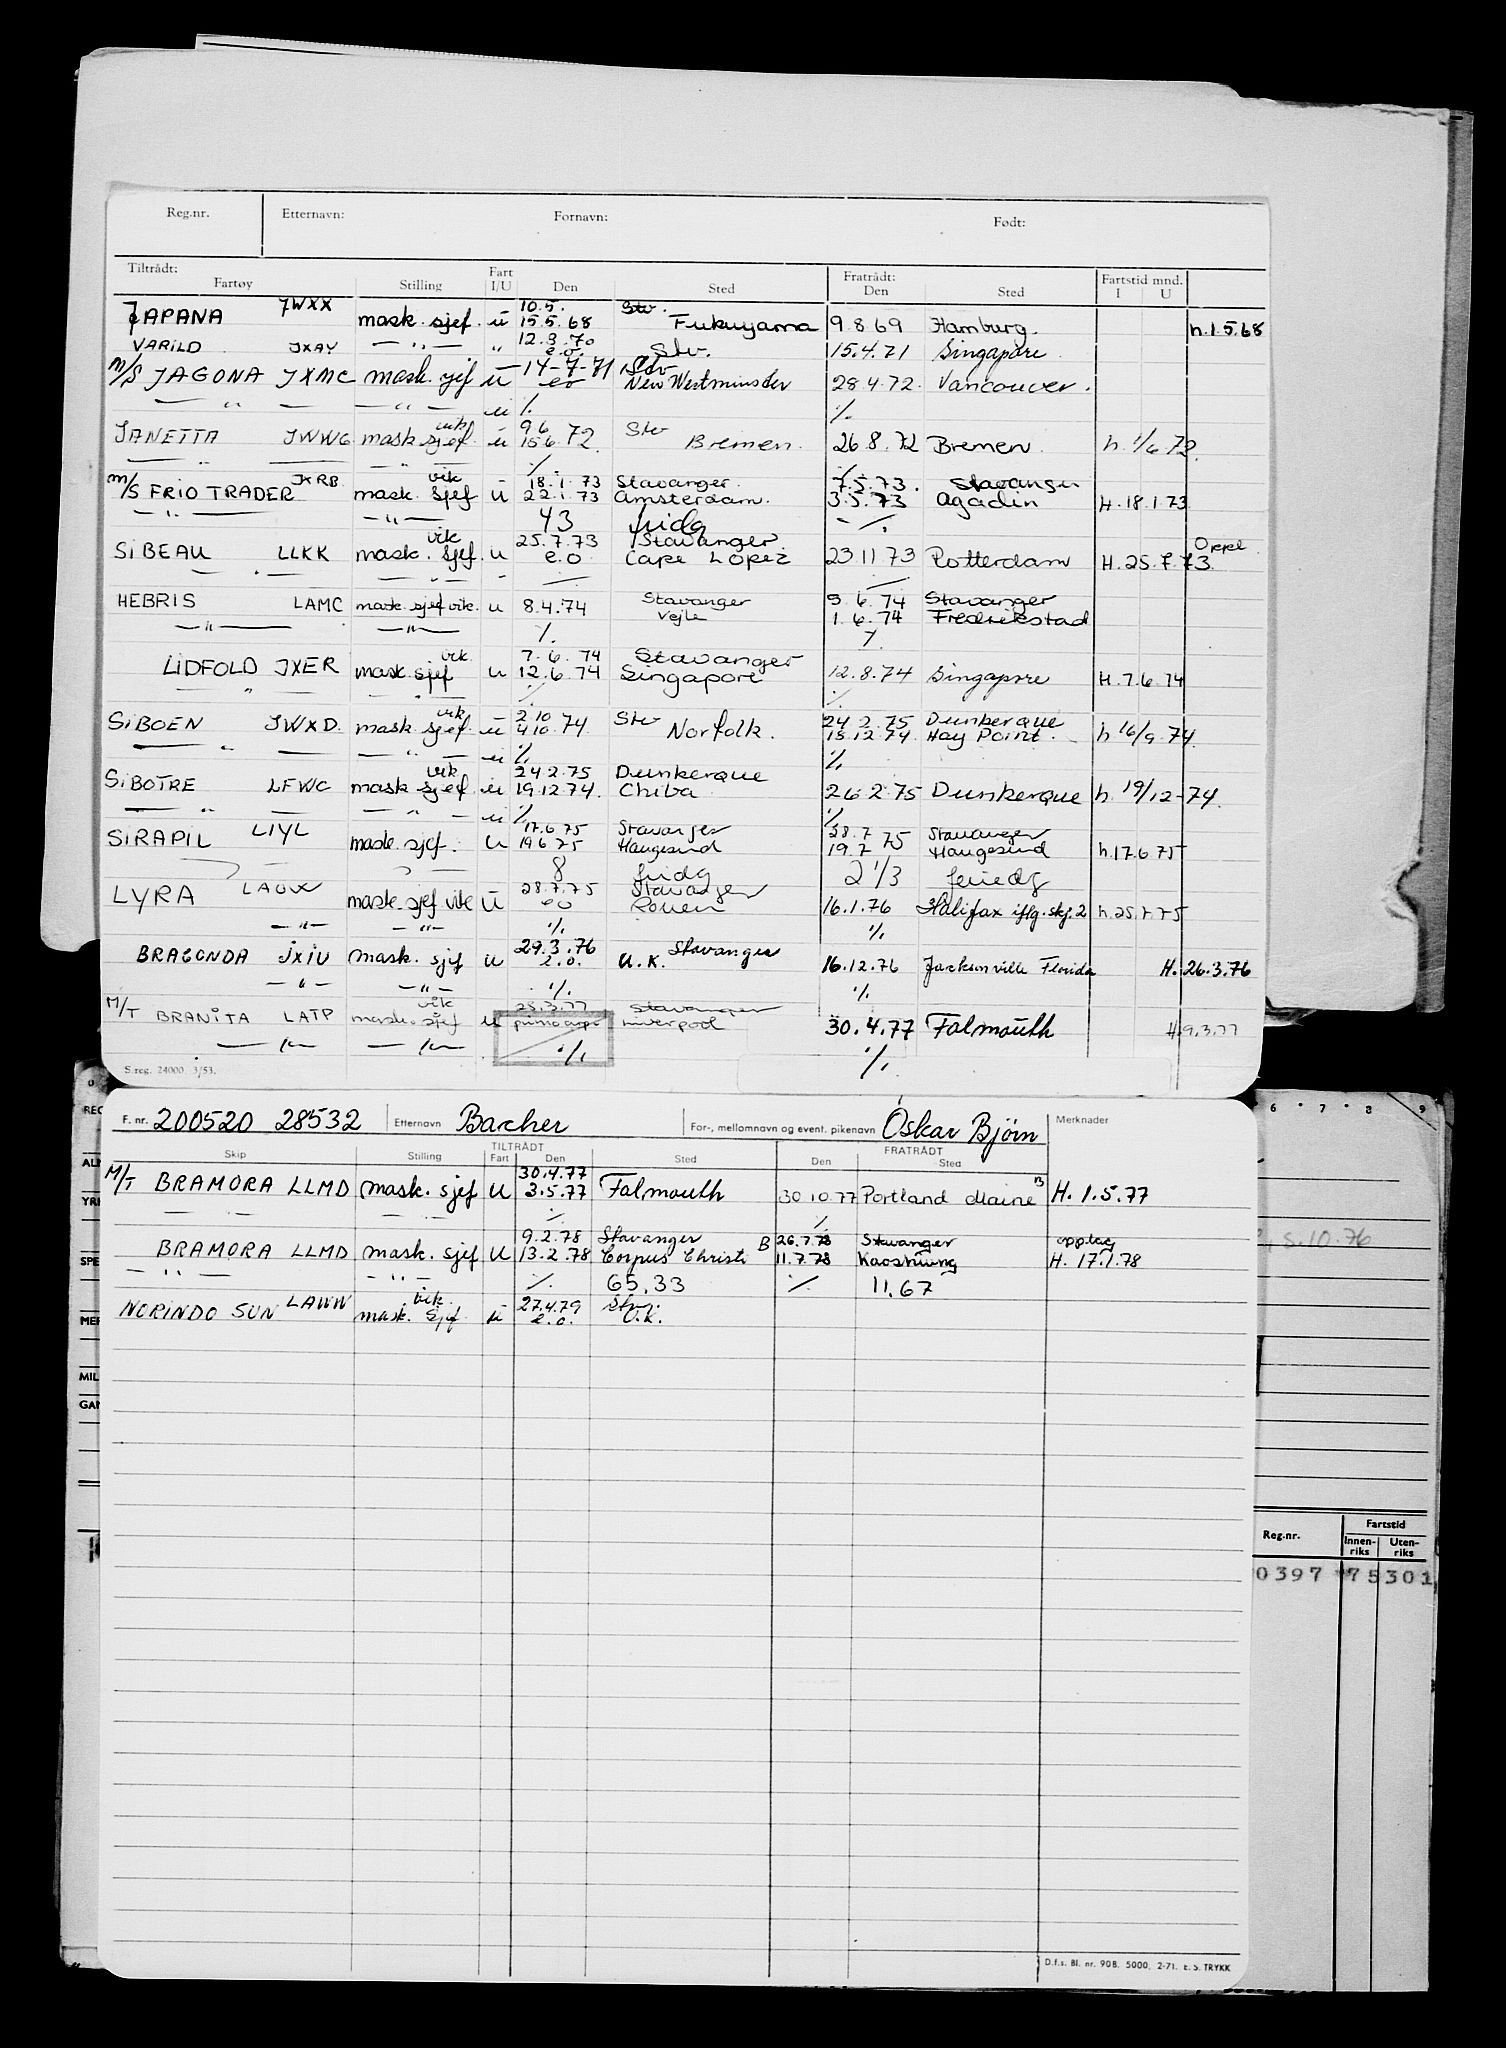 Reg.nr. Etternavn: Fornavn: Født:
Tiltrådt: Fart Fratrådt: Fartstid mnd.
Fartøy Stilling I/U Den Sted Den Sted I U
JAPANA JWXX mask. sjef. u 10.5. Stv.
15.5.68 Fukuyama 9.8.69 Hamburg. h.1.5.68
VARILD JXAY — " — " 12.3.70 Stv. 15.4.71 Singapore
e.o.
M/S JAGONA JXMC mask. sjef u 14-7-71 Stv
eo New Westminster 28.4.72. Vancouver.
— " — — " — u % %
JANETTA JWWG mask. sjef vik u 9.6 72 Stv
15.6. 72. Bremen. 26.8.72 Bremen. h. 1/6.72.
— " — — " — % %
M/S FRIO TRADER JXRB mask. sjef vik u 18.1.73 Stavanger. 7.5.73. Stavanger
22.1.73 Amsterdam. 3.5.73 Agadin H.18.1.73
— " — — " — 43 fridg %
SIBEAU LLKK mask. sjef. vik u 25.7.73 Stavanger Oppl.
e.o. Cape Lopez 23.11.73 Rotterdam H.25.7.73.
— " — — " —
HEBRIS LAMC mask sjef vik. u 8.4.74 Stavanger 5.6.74 Stavanger
Vejle 1.6.74 Fredrikstad
— " — — " — % %
LIDFOLD JXER mask sjef vik u 7.6.74 Stavanger
12.6.74 Singapore 12.8.74 Singapore H.7.6.74
— " — — " — % %
SIBOEN JWXD. mask. sjef. vik u 2.10 74. Stv 24.2.75 Dunkerque
4.10. Norfolk. 15.12.74. Hay Point. h 16/9.74.
— " — — " — u % %
SIBOTRE LFWC mask. sjef vik u 24.2.75 Dunkerque
19.12.74. Chiba 26.2.75 Dunkerque h. 19/12-74.
— " — — " — u % %
SIRAPIL LIYL mask. sjef. u 17.6.75 Stavanger 28.7 75 Stavanger
19.6.75 Haugesund 19.7 Haugesund h.17.6.75
8 fridg 2 1/3 feriedg
LYRA LAOW mask. sjef vik u 28.7.75 Stavanger
eo Rouen 16.1.76 Halifax iflg. skj. 2 h.25.7.75
— " — — " — % %
BRAGONDA JXIU mask. sjef u 29.3.76 Stavanger
e.o. U.K. 16.12.76 Jacksonville Florida H. 26.3.76
— " — — " — % %
M/T BRANITA LATP mask. sjef vik u 25.3.77 Stavanger
primo apr Liverpool 30.4.77 Falmouth H.9.3.77
— " — — " — % %
S.reg. 24000. 3/53.
F. nr. 200520 28532 Etternavn Bacher For-, mellomnavn og event. pikenavn Oskar Bjørn Merknader
TILTRÅDT FRATRÅDT
Skip Stilling Fart Den Sted Den Sted
M/T BRAMORA LLMD mask. sjef u 30.4.77
3.5.77 Falmouth 30.10.77 Portland Maine B H. 1.5.77
— — — — % %
BRAMORA LLMD mask. sjef u 9.2.78 Stavanger B 26.7.78 Stavanger opptag
13.2.78 Corpus Christi 11.7.78 Kaoshiung H. 17.1.78
— " — — " — % 65,33 % 11,67
NORINDO SUN LAWW mask. sjef vik. u 27.4.79 Stv.
e.o. U.K.
D.f.s. Bl. nr. 90B. 5000, 2-71. E. S. TRYKK
6 • 7 • 8 9
5.10.76
Reg.nr. Fartstid
Innen-riks Uten-riks
0397 75301